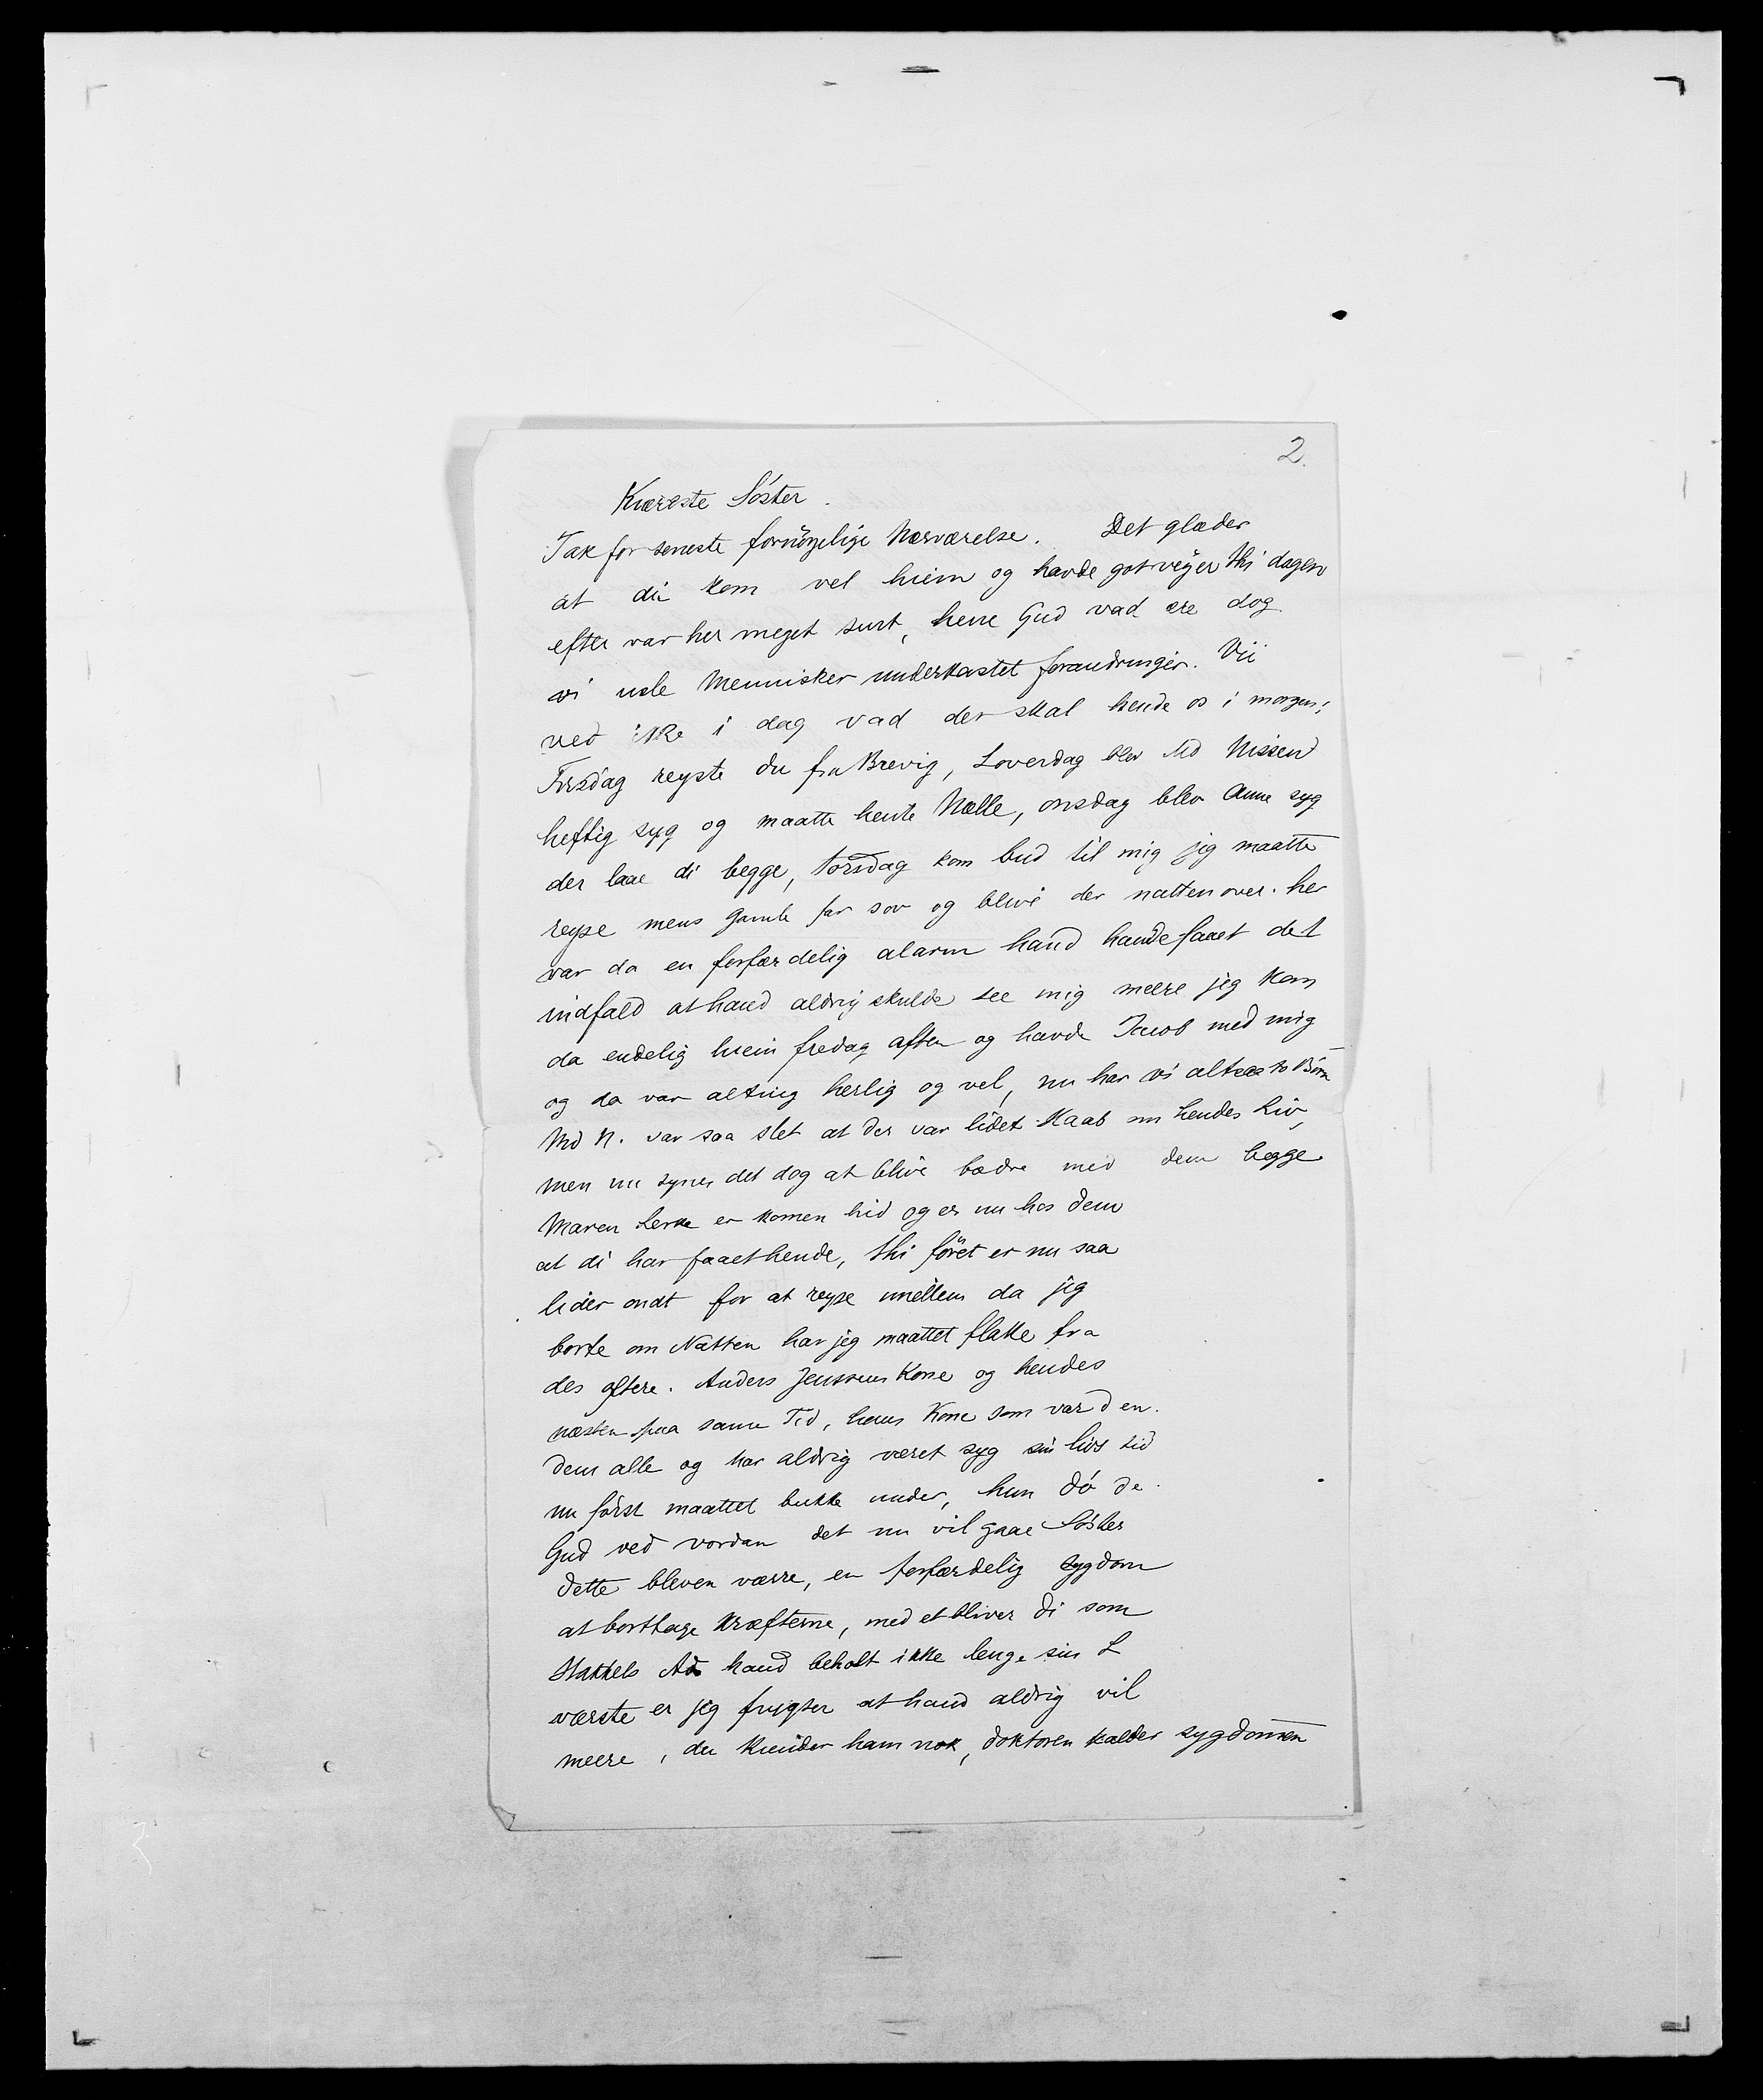 2.
Kiæreste Söster.
Tak for seneste fornöyelige Nærværelse. Det glæder
at du kom vel hiem og havde got veyer thi dagen
efter var her meget surt, herre Gud vad ere dog
vi usle Mennisker underkastet forandringer. Vii
ved ikke i dag vad der skal hende os i morgen;
Tirsdag reyste du fra Brevig, Loverdag blev Md Nissen
heftig syg og maatte hente Nælle, onsdag blev Anne syg
der laae di begge, torsdag kom bud til mig jeg maatte
reyse mens gamle far sov og blive der natten over. her
var da en forfærdelig alarm hand havde faaet det
indfald at hand aldrig skulde see mig meere jeg kom
da endelig hiem fredag aften og havde Jacob med mig
og da var alting herlig og vel, nu har vi alt to Börn
Md N. var saa slet at der var lidet Haab om hendes Liv,
men nu synes det dog at blive bædre med dem begge
Maren Lerke er komen hid og er nu hos dem
at di har faaet hende, thi föret er nu saa
lider ondt for at reyse imellem da jeg
borte om Natten har jeg maattet flakke fra
des oftere. Anders Jenssens Kone og hendes
næsten paa samme Tid, hans Kone som var den
dem alle og har aldrig været syg sin livs tid
nu först maattet bukke under, hun dö de
Gud ved vordan det nu vil gaae Söster
dette bleven værre, en forfærdelig sygdom
at borttage Kræfterne, med et bliver di som
Stakkels Ad hand beholt ikke lenge sin L
værste er jeg frygter at hand aldrig vil
meere, du kiender ham nok, doktoren kalder sygdommen